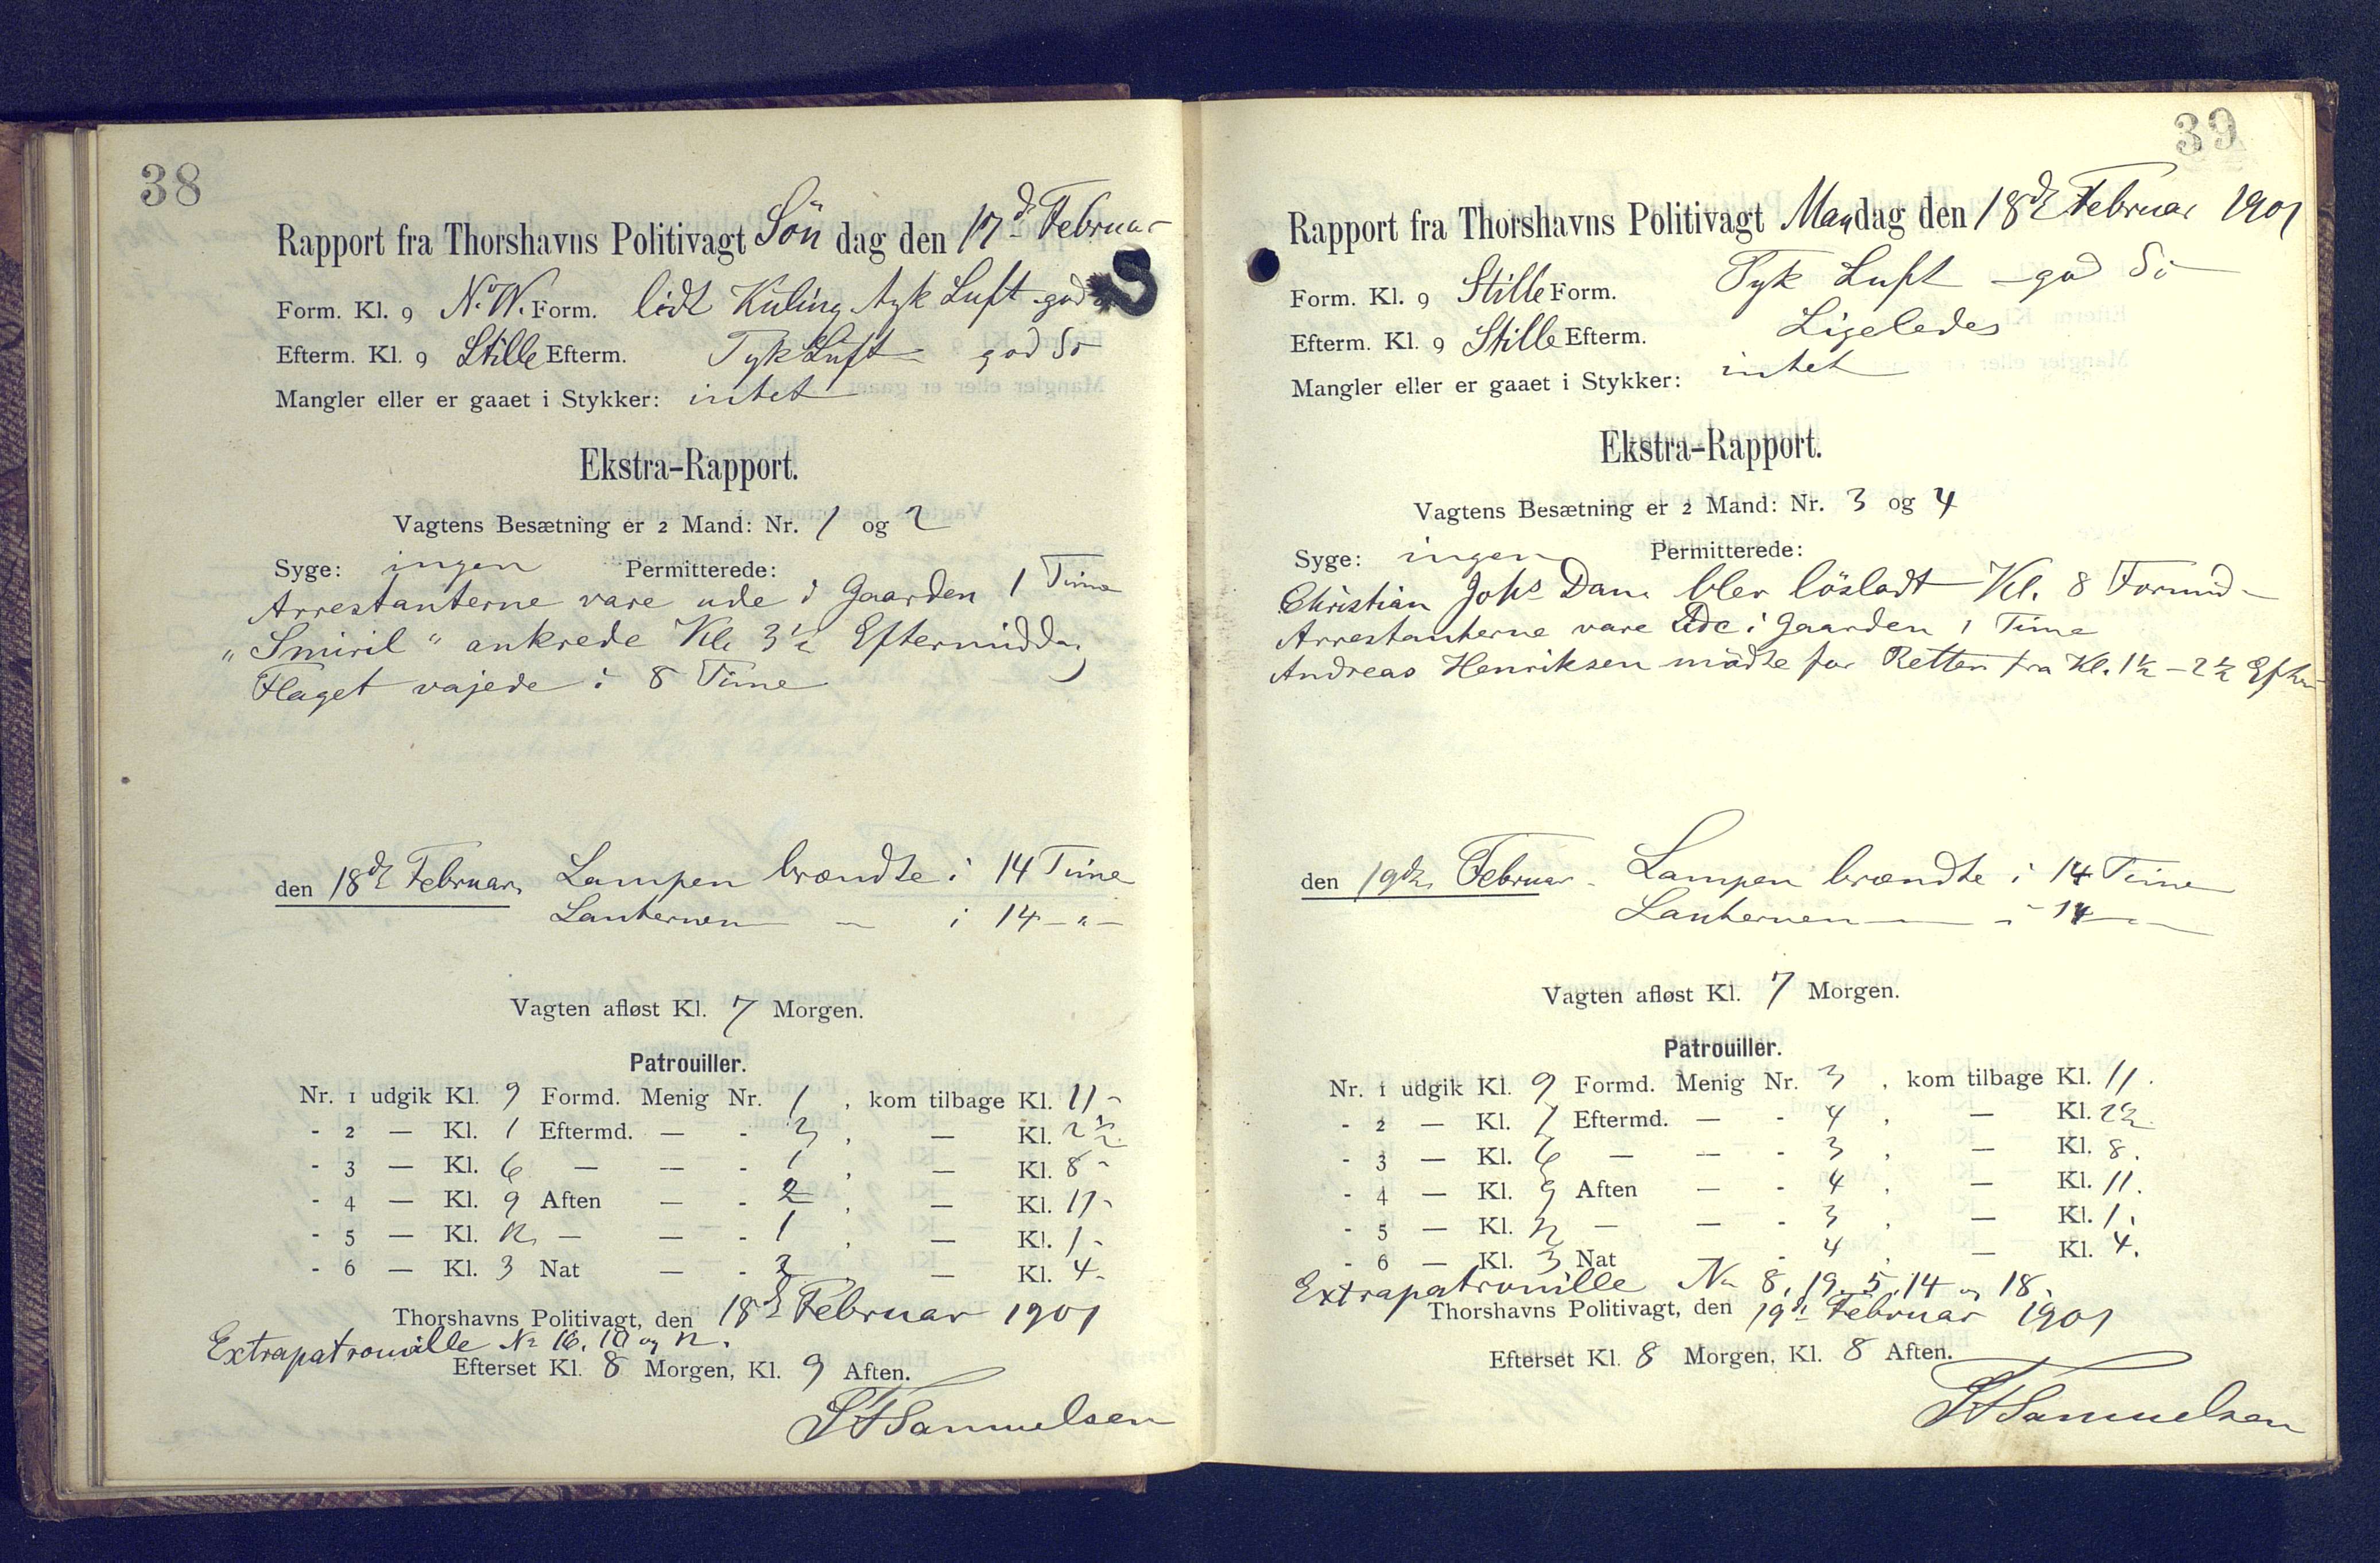 38
Rapport fra Thorshavns Politivagt Sön dag den 17d Februar
Form. Kl. 9 N.W. Form. lidt Kuling tyk Luft god
Efterm. Kl. 9 Stille Efterm. Tyk Luft god Sö
Mangler eller er gaaet i Stykker: intet
Ekstra-Rapport.
Vagtens Besætning er 2 Mand: Nr. 1 og 2
Syge: ingen Permitterede:
Arrestanterne vare ude i Gaarden 1 Time
„Smiril" ankrede Kl. 3½ Eftermiddag
Flaget vajede i 8 Time
den 18de Februar. Lampen brændte i 14 Time
Lanternen — i 14 -"-
Vagten afløst Kl. 7 Morgen.
Patrouiller.
Nr. 1 udgik Kl. 9 Formd. Menig Nr. 1, kom tilbage Kl. 11-
- 2 — Kl. 1 Eftermd. — - , — Kl. 2½.
- 3 — Kl. 6 — — - 1, — Kl. 8-
- 4 — Kl. 9 Aften — - 2, — Kl. 11-
- 5 — Kl. 12 — — - 1, — Kl. 1-
- 6 — Kl. 3 Nat — - 2 — Kl. 4-
Thorshavns Politivagt, den 18de Februar 1901
Extrapatrouille Nr 16, 10 og 12.
Efterset Kl. 8 Morgen, Kl. 9 Aften.
Samuelsen
39
Rapport fra Thorshavns Politivagt Mandag den 18de Februar 1901
Form. Kl. 9 Stille Form. Tyk Luft god Sö
Efterm. Kl. 9 Stille Efterm. Ligeledes
Mangler eller er gaaet i Stykker: intet
Ekstra-Rapport.
Vagtens Besætning er 2 Mand: Nr. 3 og 4
Syge: ingen Permitterede:
Christian Johs Dam blev lösladt Kl. 8 Formid-
Arrestanterne vare ude i Gaarden 1 Time
Andreas Henriksen mödte for Retten fra Kl. 1½ - 2½ Efterm
den 19de Februar. Lampen brændte i 14 Time
Lanternen — - 14 —
Vagten afløst Kl. 7 Morgen.
Patrouiller.
Nr. 1 udgik Kl. 9 Formd. Menig Nr. 3, kom tilbage Kl. 11.
- 2 — Kl. 1 Eftermd. — - 4, — Kl. 2½.
- 3 — Kl. 6 — — - 3, — Kl. 8.
- 4 — Kl. 9 Aften — - 4, — Kl. 11.
- 5 — Kl. 12 — — - 3, — Kl. 1.
- 6 — Kl. 3 Nat — - 4, — Kl. 4.
Extrapatrouille Nr 8, 19, 5, 14 og 18.
Thorshavns Politivagt, den 19de Februar 1901
Efterset Kl. 8 Morgen, Kl. 8 Aften.
Samuelsen